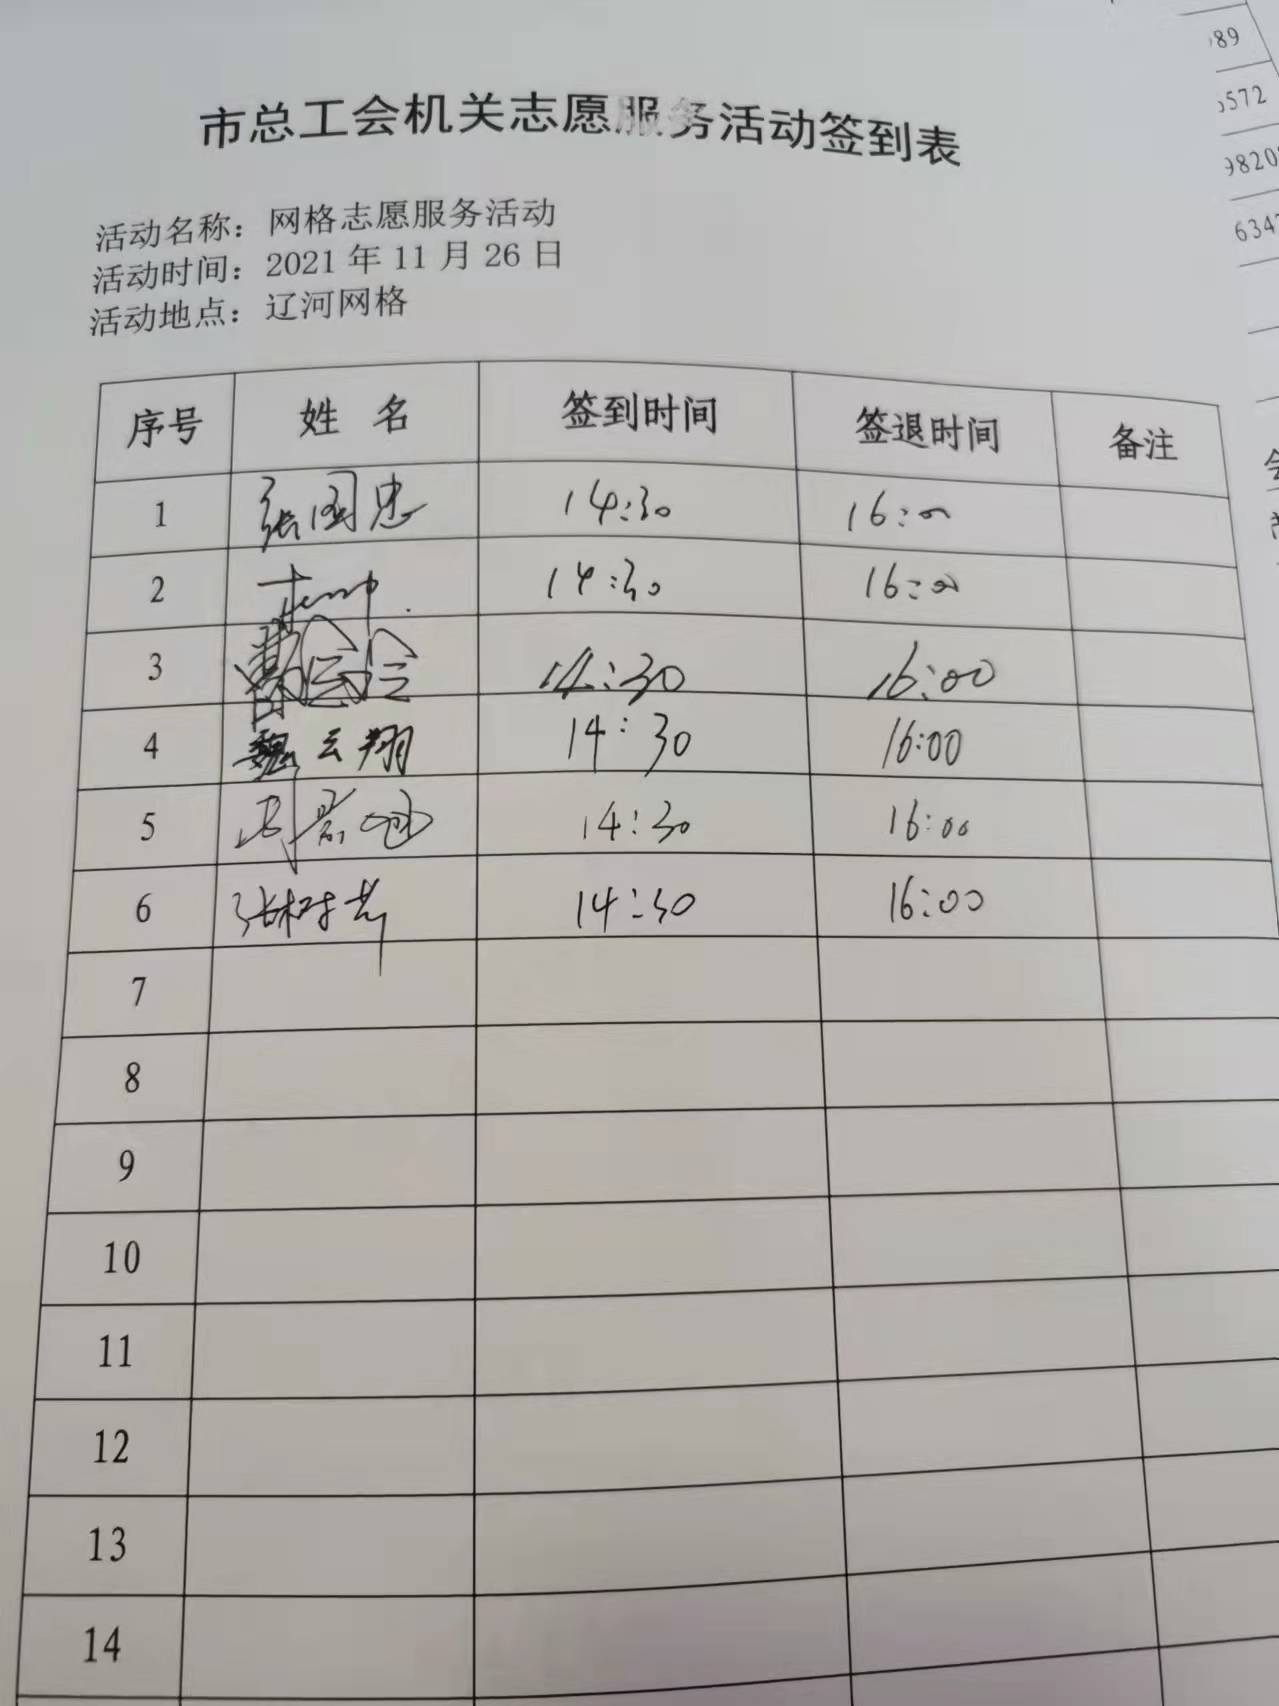 市总工会机关志愿服务活动签到表
活动名称：网格志愿服务活动
活动时间：2021年11月26日
活动地点：辽河网格
序号 姓名 签到时间 签退时间 备注
1 张国忠 14:30 16:00
2 14:30 16:00
3 14:30 16:00
4 魏云翔 14:30 16:00
5 14:30 16:00
6 14:30 16:00
7
8
9
10
11
12
13
14
89
5572
9820
634